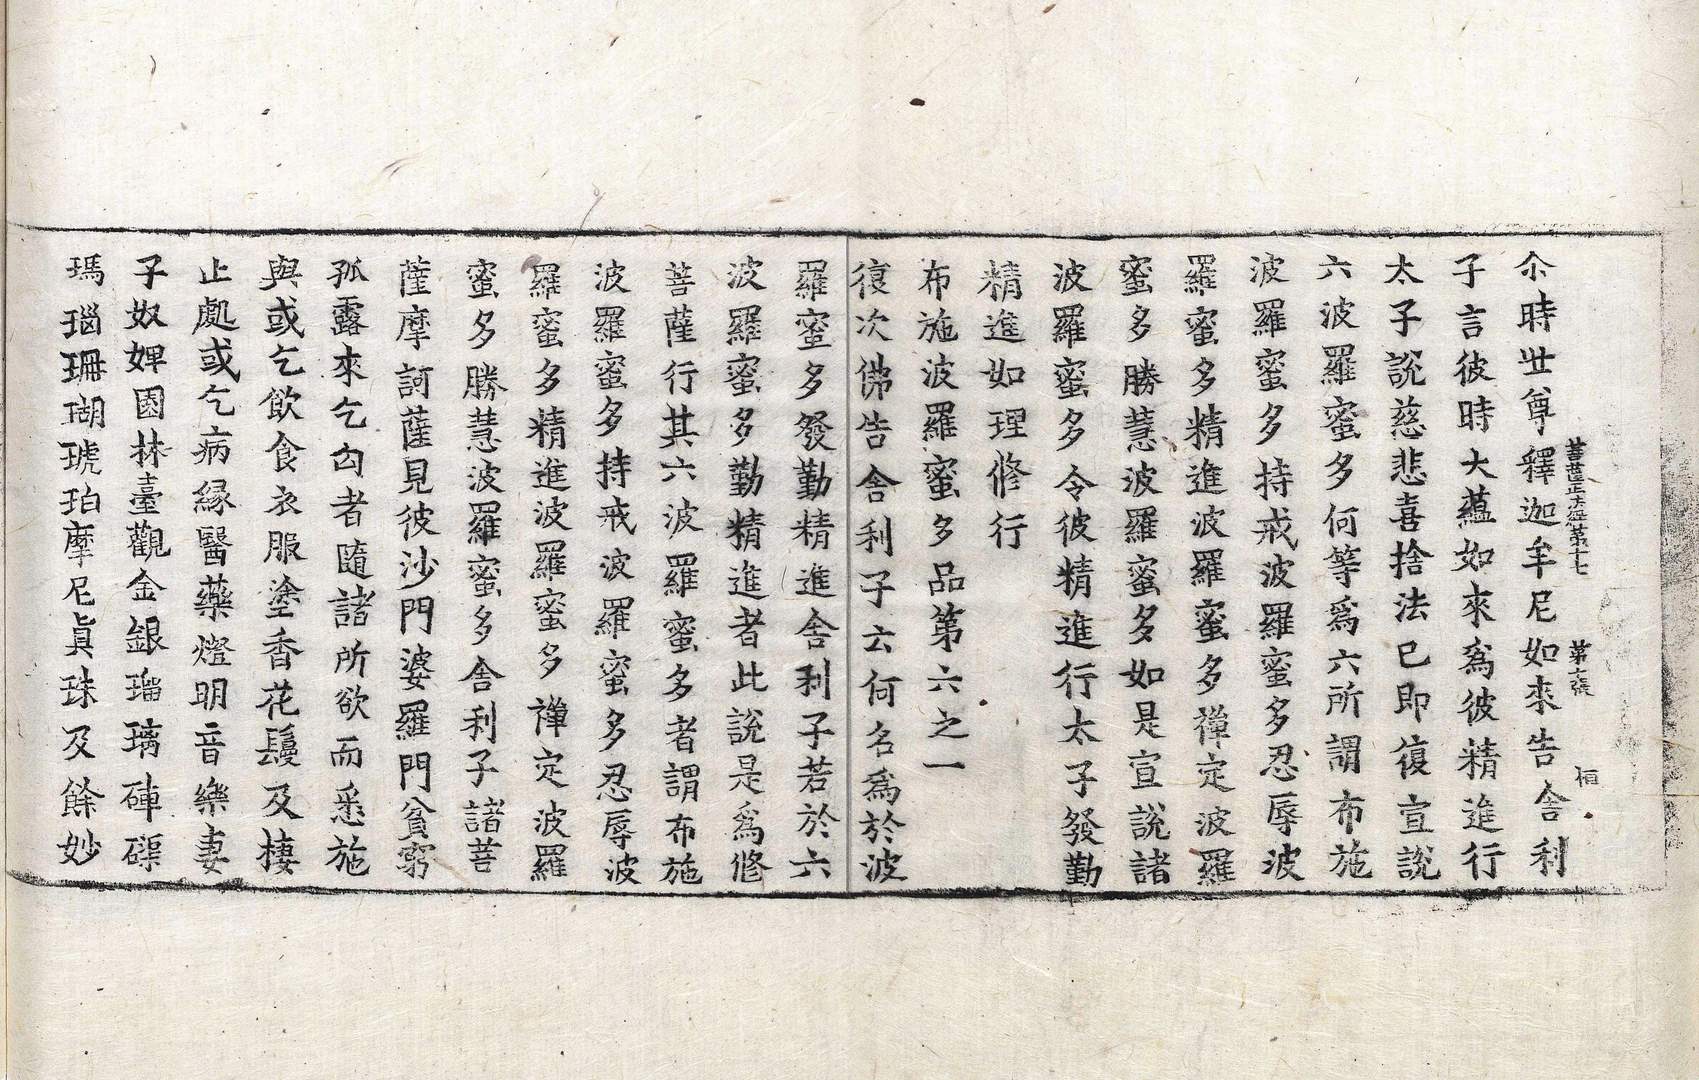 菩薩正大經第十七 第七張 桓
尒時丗尊釋迦牟尼如來告舍利
子言彼時大蘊如來爲彼精進行
太子說慈悲喜捨法已即復宣說
六波羅蜜多何等爲六所謂布施
波羅蜜多持戒波羅蜜多忍辱波
羅蜜多精進波羅蜜多禪定波羅
蜜多勝慧波羅蜜多如是宣說諸
波羅蜜多令彼精進行太子發勤
精進如理修行
布施波羅蜜多品第六之一
復次佛告舍利子云何名爲於波
羅蜜多發勤精進舍利子若於六
波羅蜜多勤精進者此說是爲修
菩薩行其六波羅蜜多者謂布施
波羅蜜多持戒波羅蜜多忍辱波
羅蜜多精進波羅蜜多禪定波羅
蜜多勝慧波羅蜜多舍利子諸菩
薩摩訶薩見彼沙門婆羅門貧窮
孤露來乞匃者隨諸所欲而悉施
與或乞飲食衣服塗香花鬘及棲
止處或乞病緣醫藥燈明音樂妻
子奴婢園林臺觀金銀瑠璃硨磲
瑪瑙珊瑚琥珀摩尼眞珠及餘妙